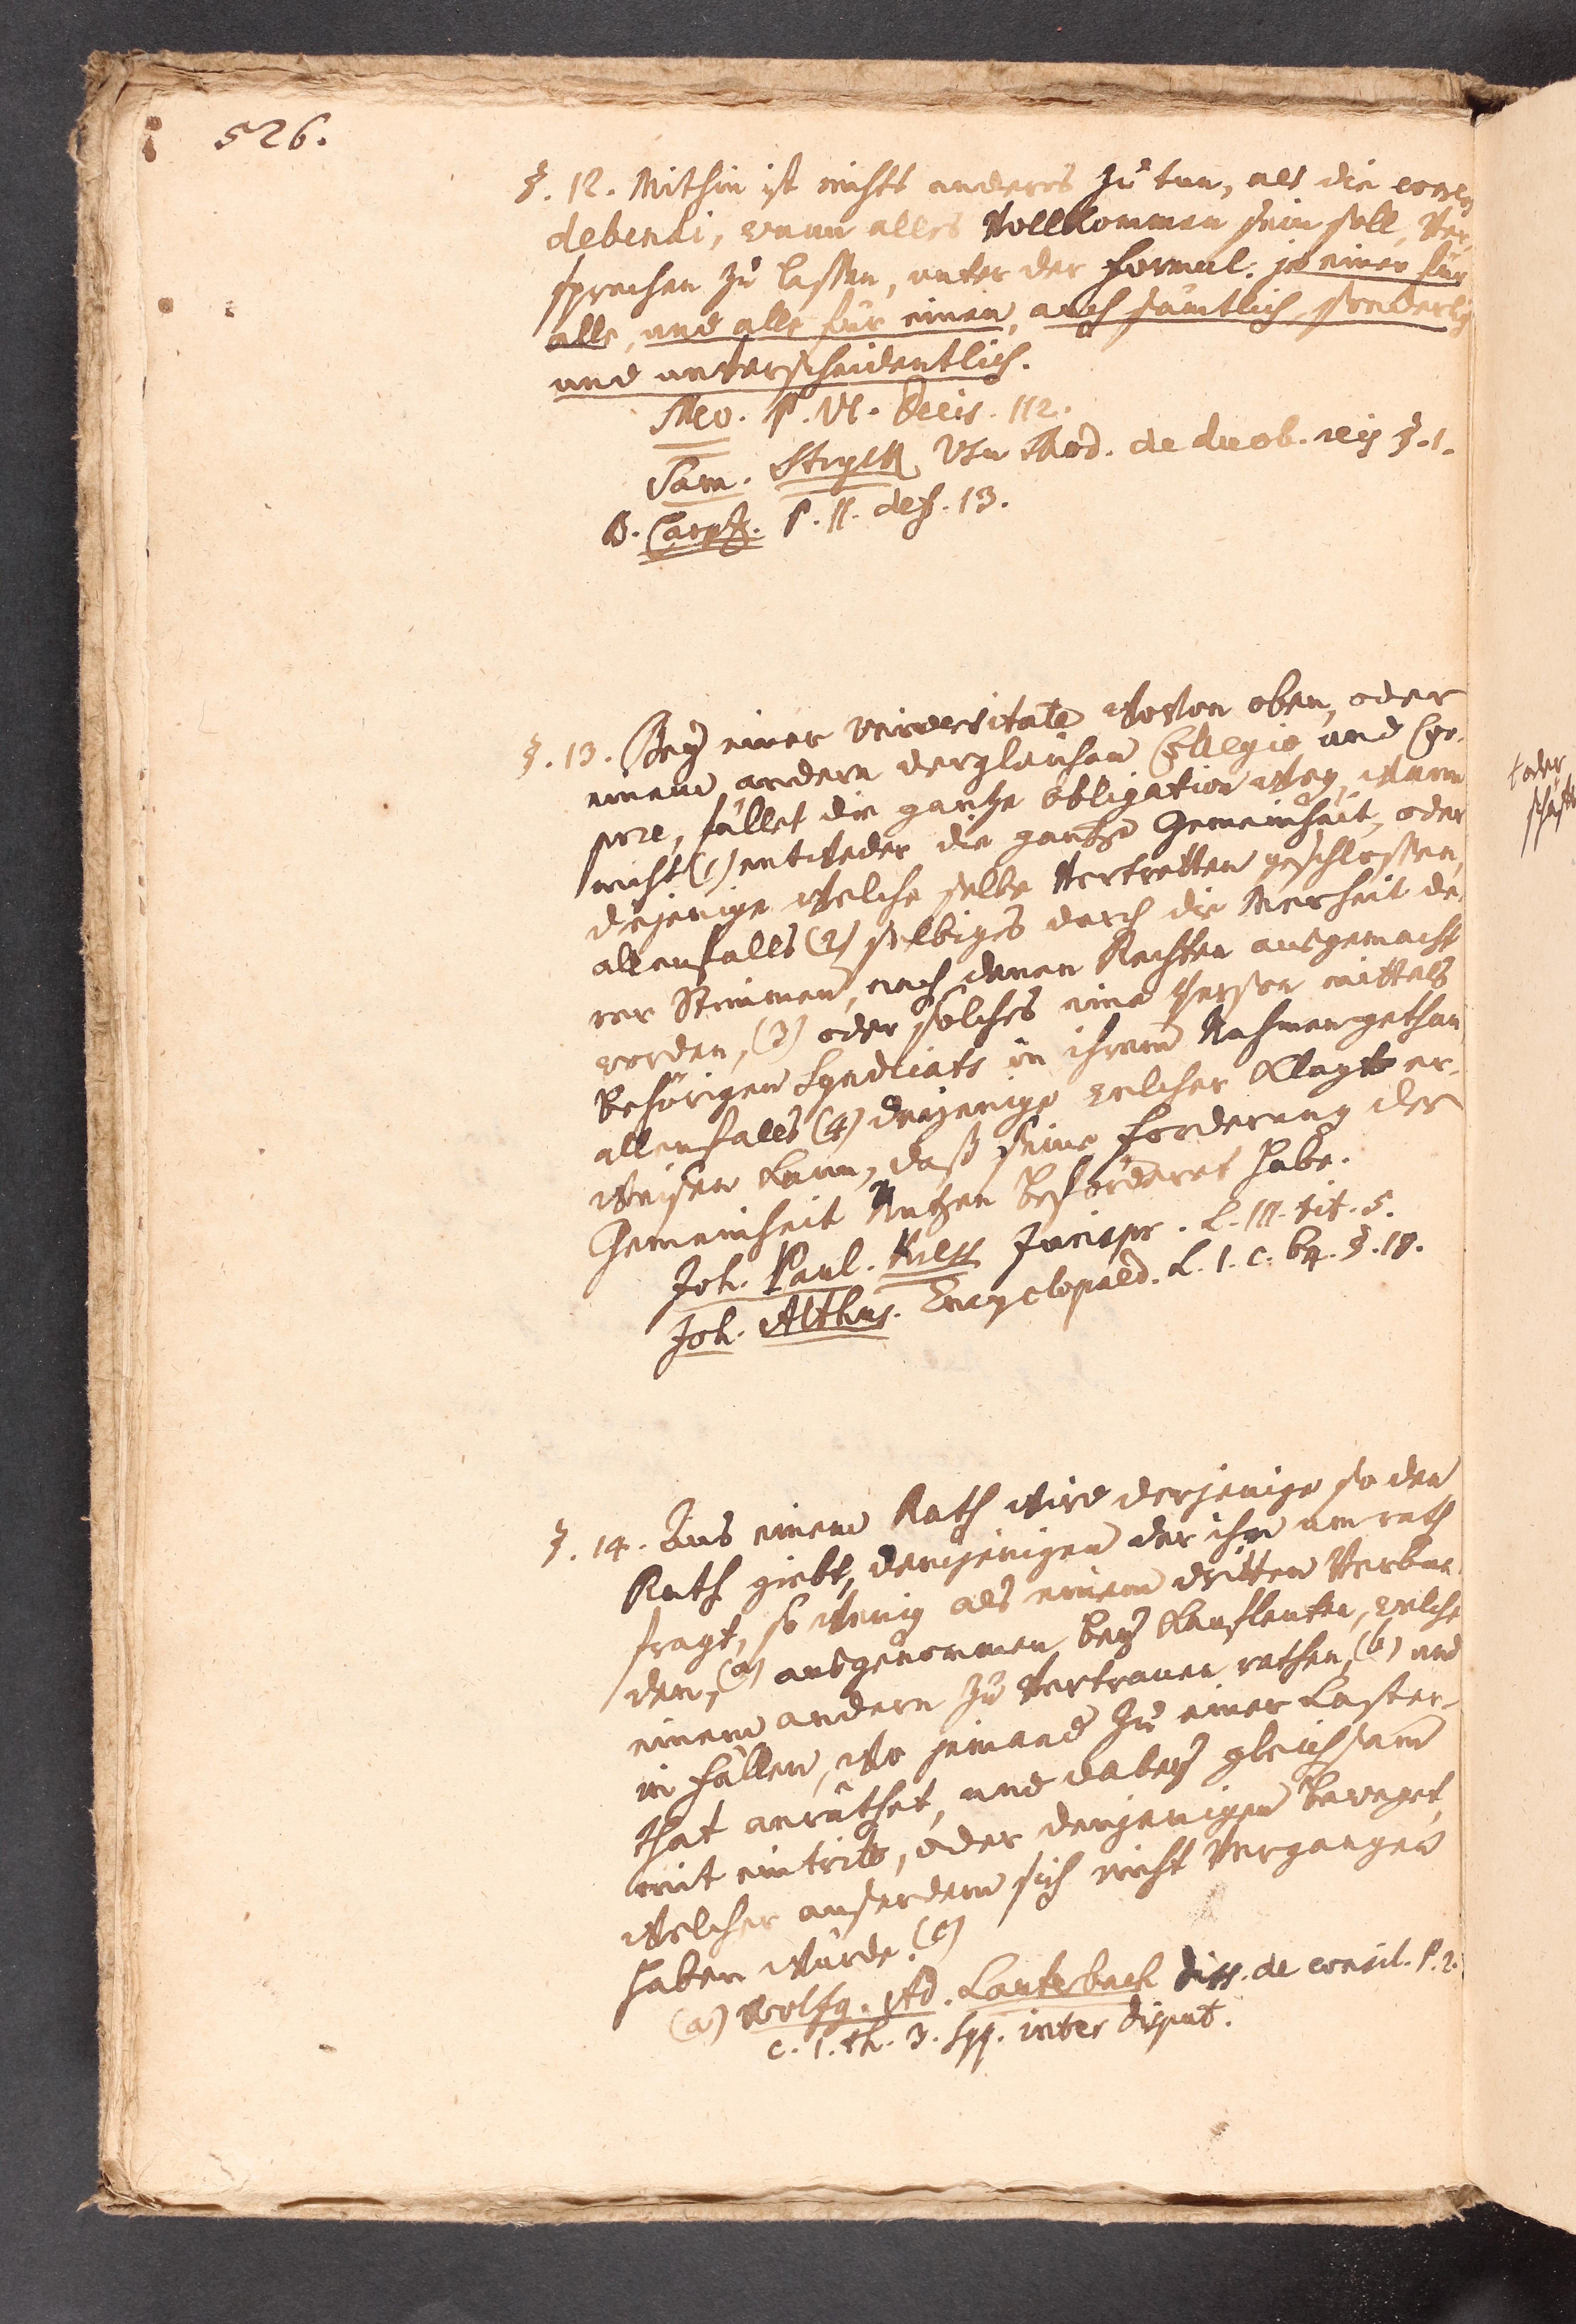 526.
§. 12. Mithin ist nichts anderes zu tun, als die correos
debendi, wann alles Vollkommen sein soll, Ver-
sprechen zu lassen, unter der Formul: je einer für
alle, und alle für einen, auch sämtlich, sonderlich
und unterscheidentlich.
Mev. P. VI. Decis. 112.
Sam. Stryck Usu Mod. de duob. reis §. 1.
B. Carpz. P. II. def. 13.
§. 13. Bey einer Universitate wovon oben, oder
einem andern dergleichen Collegio und Cor-
pore, fället die gantze obligation weg, wann
nicht (1) entweder die gantze Gemeinheit, oder
diejenige welche selbe Vertretten geschlossen,
allenfalls (2) selbiges durch die Merheit de-
rer Stimmen, nach denen Rechten ausgemacht
worden, (3) oder solches eine Person mittels
behörigen Syndicats in ihrem Nahmen gethan,
allenfalls (4) derjenige welcher Klagt er-
weisen kann, daß seine Forderung der
Gemeinheit Nutzen befördert habe.
Joh. Paul. Kress Jurispr. L. III. tit. 5.
Joh. Althus. Encyclopaed. L. 1. c. 64. §. 18.
§. 14. Aus einem Rath wird derjenige so den
Rath giebt, demjenigen der ihn um rath
fragt, so wenig als einem dritten Verbun-
den, (a) ausgenommen bey Kaufleuten, welche
einem andern zu Vertrauen rathen, (b) und
in Fällen, wo jemand zu einer Laster-
that anräthet, und dabey gleichsam
mit eintritt, oder denjenigen beweget,
welcher ausserdem sich nicht Vergangen
haben würde. (c)
(a) Wolfg. Ad. Lauterbach diss. de consil. P. 2.
c. 1. th. 3. sqq. inter disput.
† oder